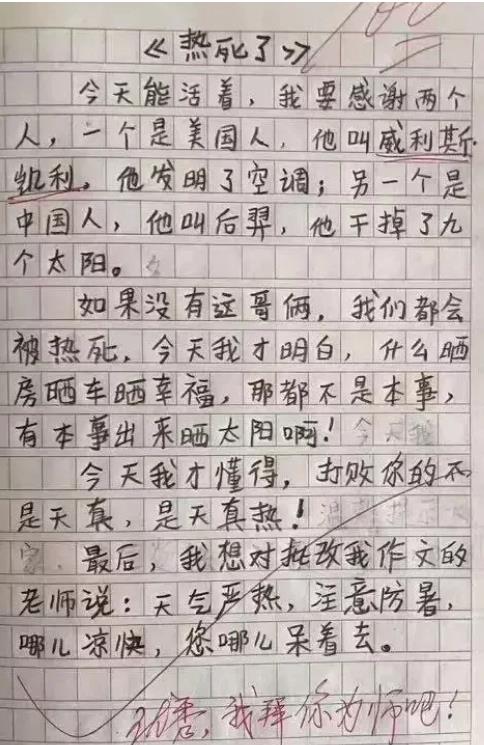 100
《热死了》
今天能活着，我要感谢两个
人，一个是美国人，他叫威利斯·
凯利，他发明了空调；另一个是
中国人，他叫后羿，他干掉了九
个太阳。
如果没有这哥俩，我们都会
被热死，今天我才明白，什么晒
房晒车晒幸福，那都不是本事，
有本事出来晒太阳啊！
今天我才懂得，打败你的不
是天真，是天真热！
最后，我想对批改我作文的
老师说：天气严热，注意防暑，
哪儿凉快，您哪儿呆着去。
优秀，我拜你为师吧！